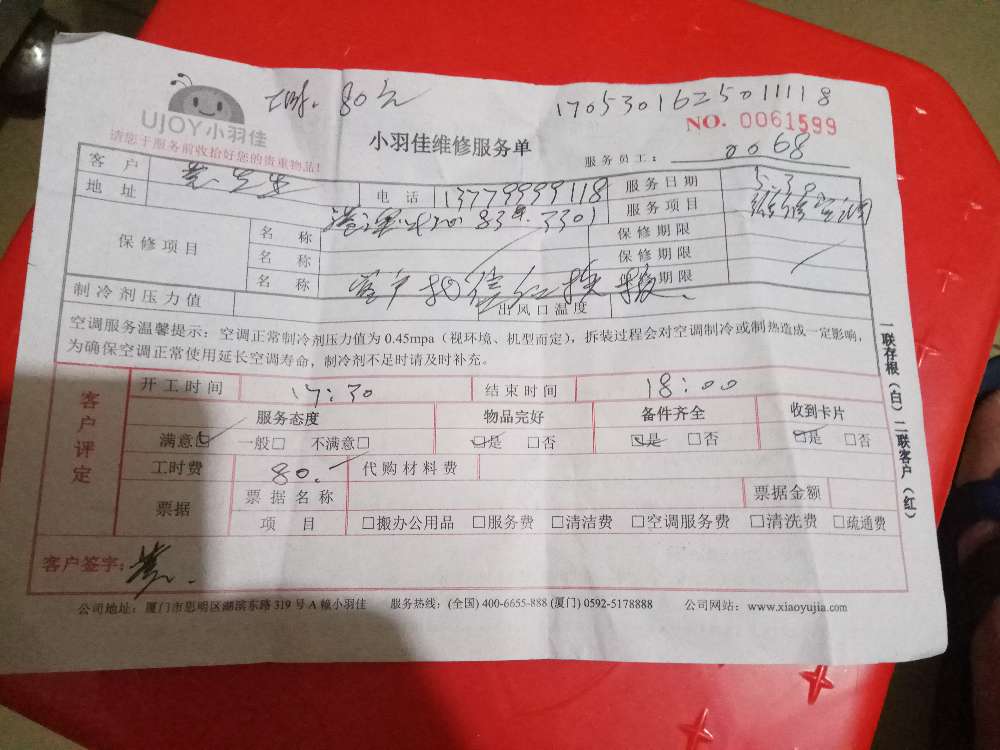 80元
1705301625011118
UJOY小羽佳
NO. 0061599
请您于服务前收拾好您的贵重物品!
小羽佳维修服务单
服务员工: 0068
客户 黄先生 电话 13779999118 服务日期 5.30
地址 83 3301 服务项目 维修空调
保修项目 名称 保修期限
名称 保修期限
名称 客户 期限
制冷剂压力值 出风口温度
空调服务温馨提示:空调正常制冷剂压力值为0.45mpa(视环境、机型而定),拆装过程会对空调制冷或制热造成一定影响,
为确保空调正常使用延长空调寿命,制冷剂不足时请及时补充。
客户评定
开工时间 17:30 结束时间 18:00
服务态度 物品完好 备件齐全 收到卡片
满意☑ 一般□ 不满意□ ☑是 □否 ☑是 □否 ☑是 □否
工时费 80. 代购材料费
票据 票据名称 票据金额
项目 □搬办公用品 □服务费 □清洁费 □空调服务费 □清洗费 □疏通费
客户签字: 黄
一联存根(白) 二联客户(红)
公司地址:厦门市思明区湖滨东路319号A幢小羽佳 服务热线:(全国) 400-6655-888 (厦门) 0592-5178888 公司网站:www.xiaoyujia.com